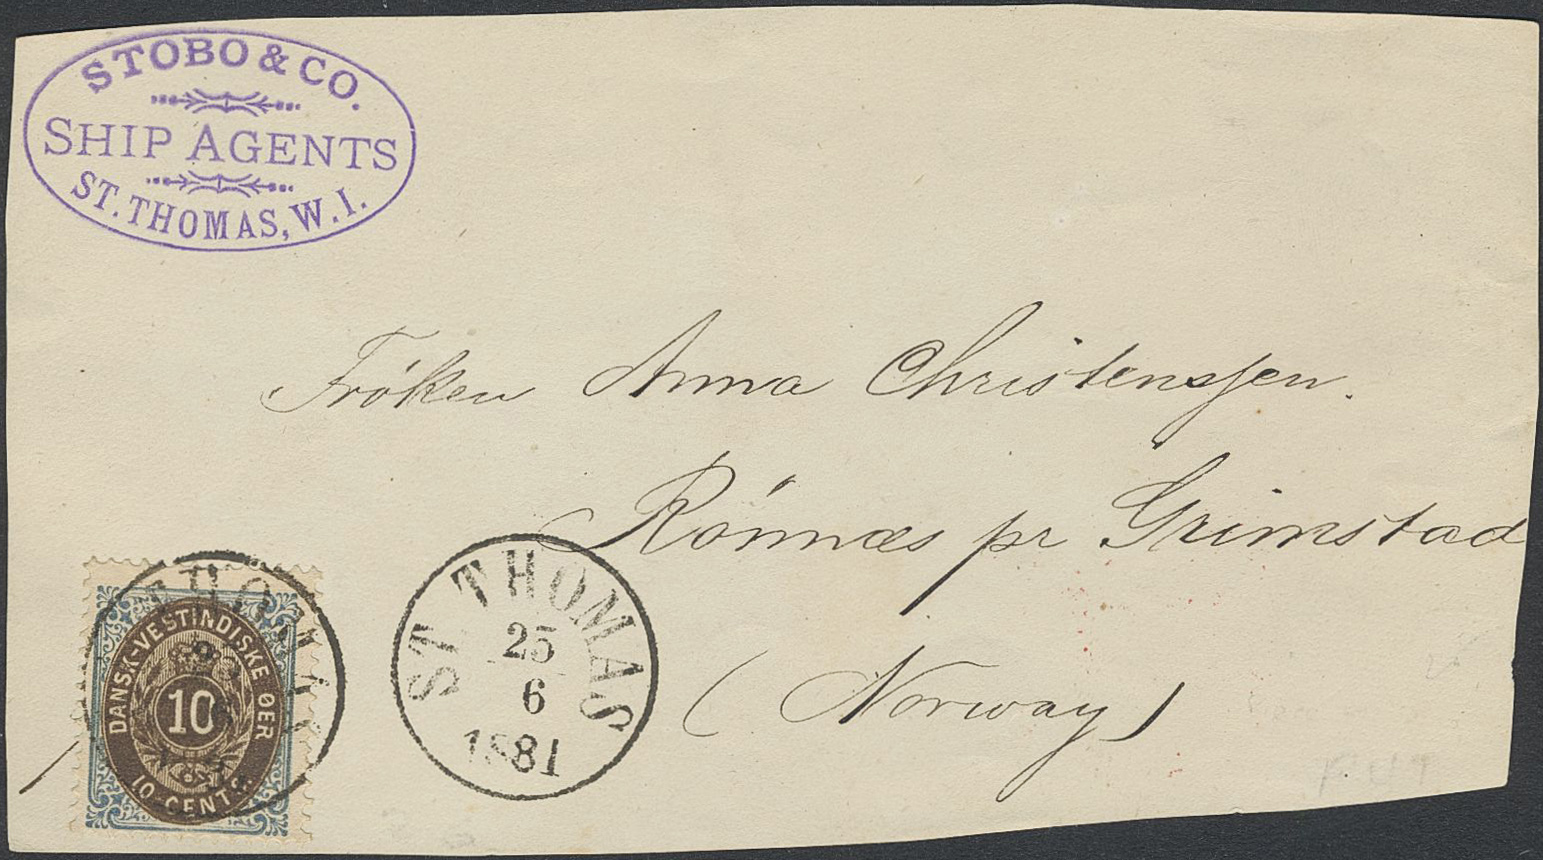 STOBO & CO.
SHIP AGENTS
ST. THOMAS, W. I.
Fröken Anna Christensen.
Rönnæs pr Grimstad
(Norway)
ST THOMAS
25
6
1881
DANSK-VESTINDISKE ØER
10
10 CENTS